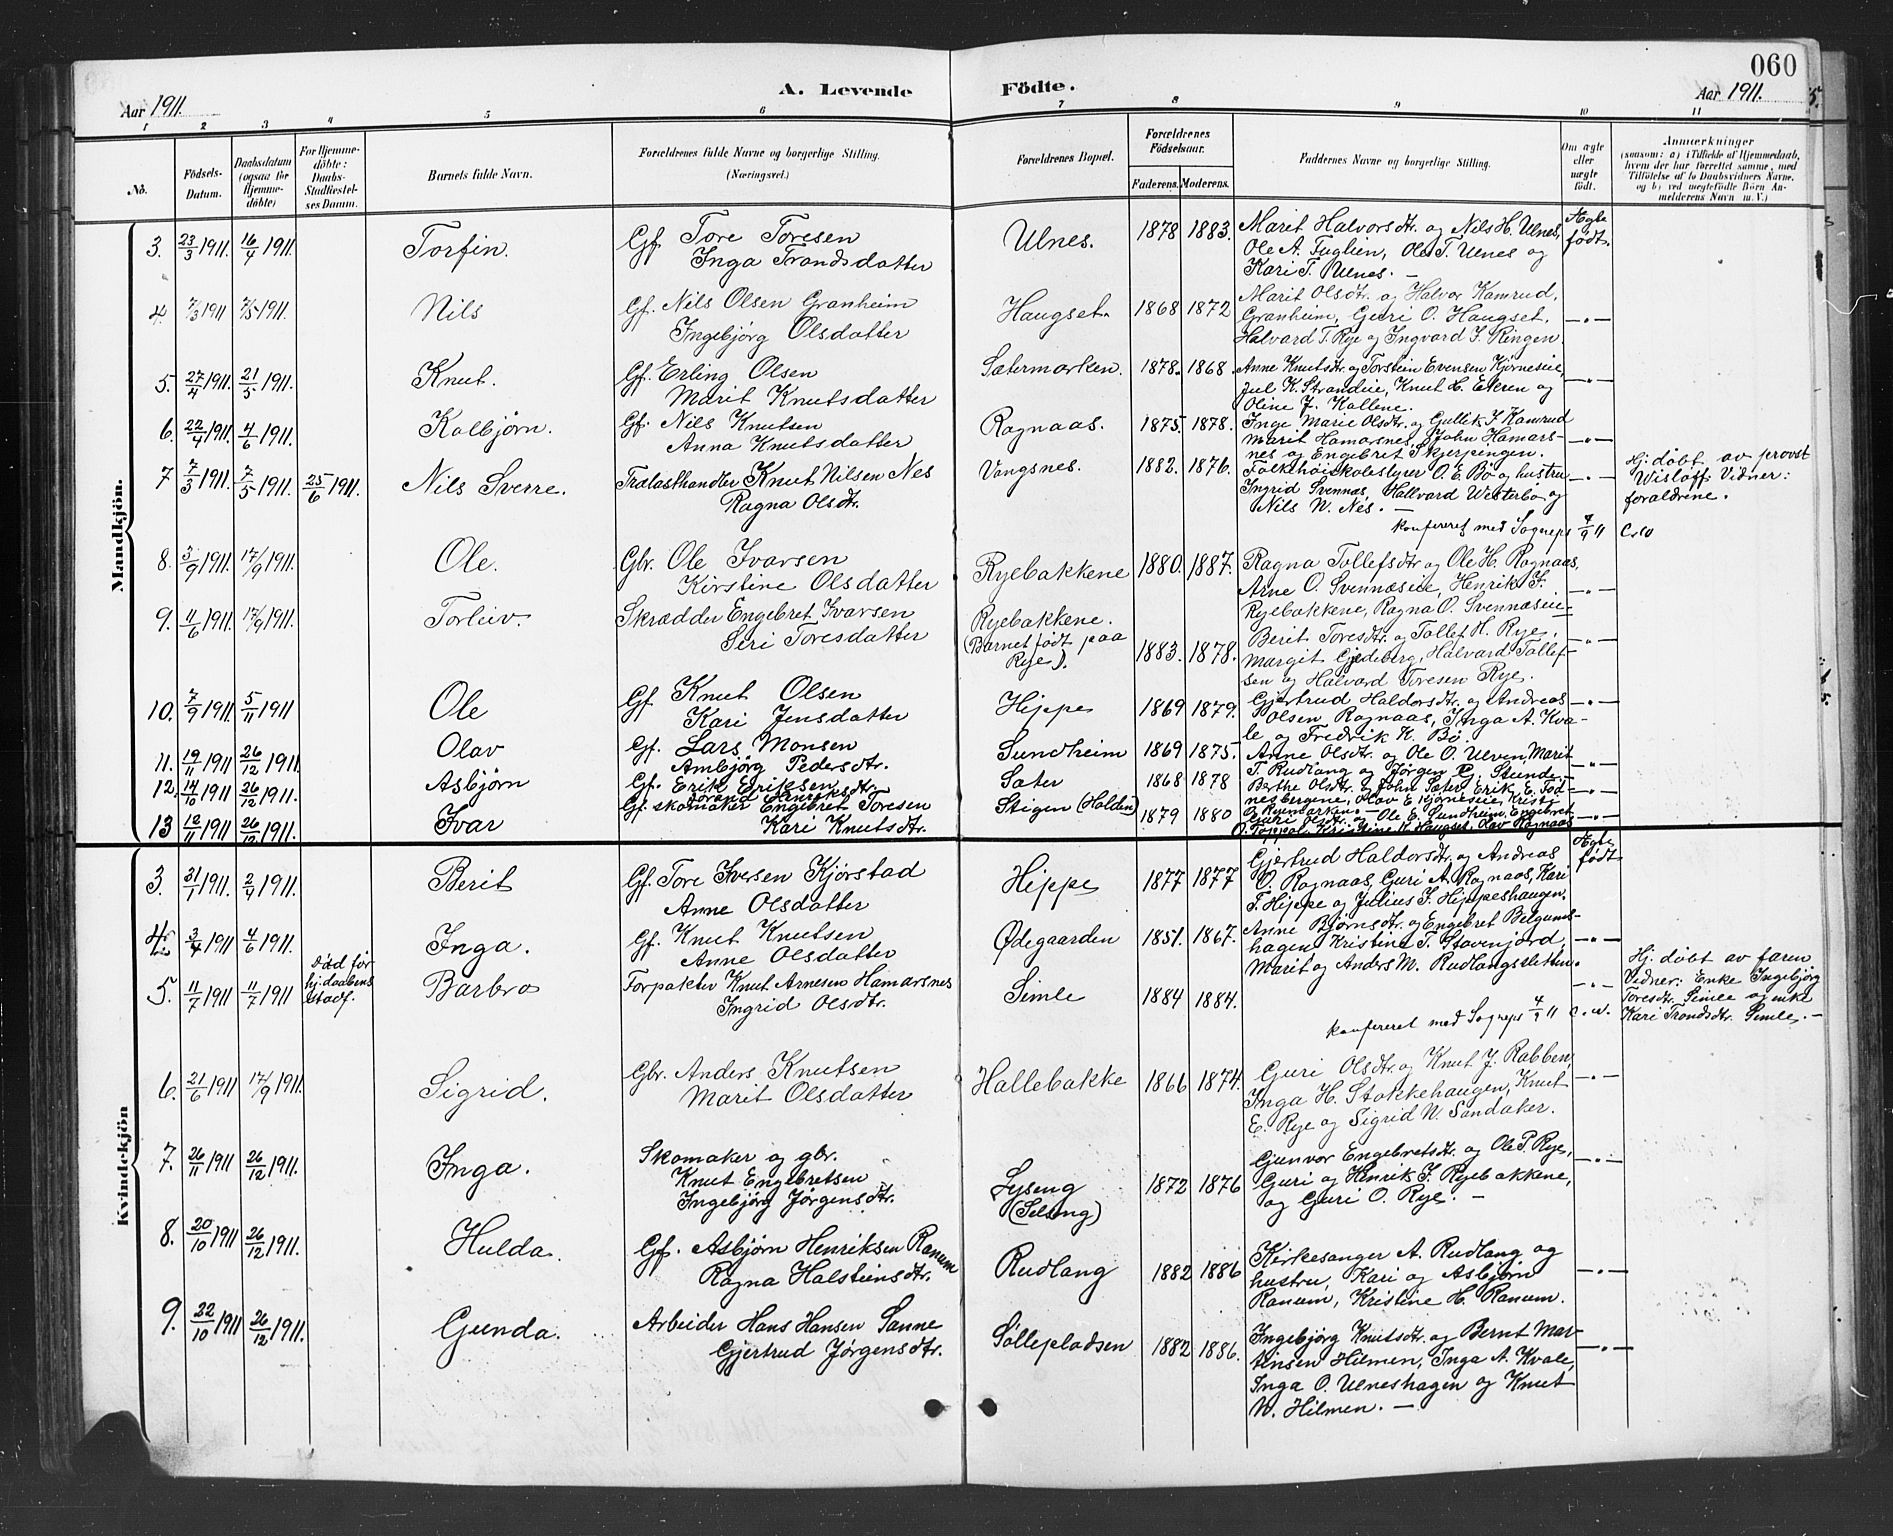 060
Aar 1911.
A. Levende Födte.
Aar 1911.
1 2 3 4 5 6 7 8 9 10 11
No.
Födsels-Datum.
Daabsdatum (ogsaa for Hjemmedöbte)
For Hjemmedöbte: Daabs-Stadfæstelses Datum.
Barnets fulde Navn.
Forældrenes fulde Navne og borgerlige Stilling.
(Næringsvei.)
Forældrenes Bopæl.
Forældrenes Födselsaar.
Faderens. Moderens.
Faddernes Navne og borgerlige Stilling.
Om ægte eller uægte födt.
Anmærkninger
(saasom: a) i Tilfælde af Hjemmedaab, hvem der har forrettet samme, med Tilföielse af to Daabsvidners Navne, og b) ved uægtefödte Börn Anmelderens Navn m. V.)
Mandkjön.
3. 23/3 1911. 16/4 1911. Torfin. Gf Tore Toresen
Inga Trondsdatter
Ulnes. 1878 1883.
Marit Halvorsdtr. og Nils H. Ulnes,
Ole A. Fuglien, Ole T. Ulnes og
Kari T. Ulnes. —
Ægte født.
4. 7/3 1911 7/5 1911. Nils Gf. Nils Olsen Granheim
Ingebjørg Olsdatter
Haugset. 1868 1872
Marit Olsdtr. og Halvor Kamrud,
Granheim, Guri O. Haugset,
Halvard T. Rye og Ingvard I. Ringen.
—„—
5. 27/4 1911. 21/5 1911. Knut. Gf. Erling Olsen
Marit Knutsdatter
Sætermarken. 1878. 1868.
Anne Knutsdtr. og Torstein Evensen Kjørneseie,
Jul K. Strandeie, Knut H. Ekren og
Oline J. Kallene.
—„—
6. 22/4 1911. 4/6 1911. Kolbjørn. Gf. Nils Knutsen
Anna Knutsdatter
Ragnaas. 1875. 1878.
Inge Marie Olsdtr. og Gullik I. Kamrud
Marit Hamarsnes, John Hamars-
nes og Engebret Skjerpengen.
—„—
7 7/3 1911. 7/5 1911. 25/6 1911. Nils Sverre. Trælasthandler Knut Nilsen Nes
Ragna Olsdtr.
Vangsnes. 1882. 1876.
Folkehøiskolestyrer O. E. Bø og hustru
Ingrid Svennæs, Hallvard Westerbo og
Nils N. Nes. —
—„—
Hj. døbt av provst
Wisløff. Vidner:
forældrene.
konfereret med Sogneps 4/9 11 C.W
8. 3/9 1911. 17/9 1911. Ole. Gbr. Ole Ivarsen
Kirstine Olsdatter
Ryebakkene 1880. 1887.
Ragna Tollefsdtr. og Ole H. Ragnaas,
Arne O. Svennæseie, Henrik I.
Ryebakkene, Ragna O. Svennæseie
—„—
9. 11/6 1911. 17/9 1911. Torleiv. Skrædder Engebret Ivarsen
Siri Toresdatter
Ryebakkene.
(Barnet født paa
Rye).
1883. 1878.
Berit Toresdtr. og Tollef H. Rye,
Margit Gjedeberg, Halvard Tollef-
sen og Halvard Toresen Rye.
—„—
10. 7/9 1911. 5/11 1911 Ole Gf Knut Olsen
Kari Jensdatter
Hippe 1869 1879.
Gjertrud Haldorsdtr. og Andreas
Olsen Ragnaas, Inga A. Kva-
le og Fredrik K. Bø.
—„—
11. 19/11 1911 26/12 1911. Olav Gf. Lars Monsen
Ambjørg Pedersdtr.
Sundheim 1869 1875.
Anne Olsdtr. og Ole O. Ulven, Marit
T. Rudlang og Jørgen E. Stende.
—„—
12. 14/10 1911 26/12 1911. Asbjørn Gf. Erik Eriksen
Sæter 1868 1878
Berthe Olsdtr. og John Sæter, Erik E.
—„—
13 12/11 1911 26/12 1911. Ivar Gf. skomaker Engebret Toresen
Kari Knutsdtr.
Stigen (Halden) 1879 1880
Guri Olsdtr. og Ole E. Sundheim, Engebret
O. Toppol, Kristine K. Haugset, Olav Ragnaas
—„—
Kvindekjön
3. 31/1 1911. 2/4 1911. Berit Gf. Tore Iversen Kjørstad
Anne Olsdatter
Hippe 1877 1877
Gjertrud Haldorsdtr. og Andreas
O. Ragnaas, Guri A. Ragnaas, Kari
T. Hippe og Julius I. Hippeshaugen.
Ægte født
4. 3/4 1911 4/6 1911. Inga. Gf. Knut Knutsen
Anne Olsdatter
Ødegaarden 1851. 1867.
Anne Bjørnsdtr. og Engebret Belgums-
hagen, Kristine T. Stavenjord,
Marit og Anders M. Rudlangsletten.
—„—
5. 11/7 1911 11/7 1911 Død før
hj. daabens
stadf.
Barbro Forpakter Knut Arnesen Hamarsnes
Ingrid Olsdtr.
Simle 1884 1884.
—„—
Hj. døbt av faren
Vidner: Enke Ingebjørg
Toresdtr. Simle og enke
Kari Trondsdtr. Simle. —
konfereret med Sogneps 4/9 11 C.W.
6. 21/6 1911 17/9 1911. Sigrid. Gbr. Anders Knutsen
Marit Olsdatter
Hallebakke 1866 1874.
Guri Olsdtr. og Knut J. Robben,
Inga H. Stokkehaugen, Knut
E. Rye og Sigrid N. Sandaker.
—„—
7. 26/11 1911 26/12 1911. Inga. Skomaker og gbr.
Knut Engebretsen
Ingebjørg Jørgensdtr.
Lyseng
(Selseng)
1872 1876
Gunvor Engebretsdtr. og Ole P. Rye,
Guri og Henrik I. Ryebakkene,
og Guri O. Rye. —
—„—
8. 20/10 1911 26/12 1911. Hulda. Gf. Asbjørn Henriksen Ranum
Ragna Halsteinsdtr.
Rudlang 1882 1886
Kirkesanger A. Rudlang og
hustru, Kari og Asbjørn
Ranum, Kristine H. Ranum.
—„—
9. 22/10 1911 26/12 1911. Gunda. Arbeider Hans Hansen Sanne
Gjertrud Jørgensdtr.
Søllepladsen 1882 1886.
Ingebjørg Knutsdtr. og Bernt Mar-
tinsen Hilmen, Inga A. Kvale,
Inga O. Ulneshagen og Knut
N. Hilmen. —
—„—